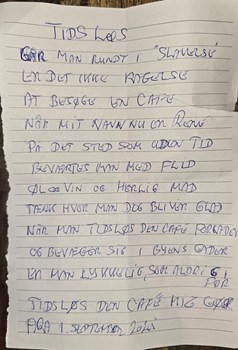 TIDSLØS
GÅR MAN RUNDT I "SLAVELSE"
ER DET IKKE KAGELSE
AT BESØGE EN CAFE
NÅR MIT NAVN NU ER RENÉ
PÅ DET STED SOM UDEN TID
BEVÆRTES MAN MED FLID
ØL OG VIN OG HERLIG MAD
TÆNK HVOR MAN DOG BLIVER GLAD
NÅR MAN TIDSLØS DEN CAFE FORLADER
OG BEVÆGER SIG I BYENS GADER
ER MAN LYKKELIG, SOM ALDRIG
FØR
TIDSLØS DEN CAFÉ MIG
1. SEPTEMBER